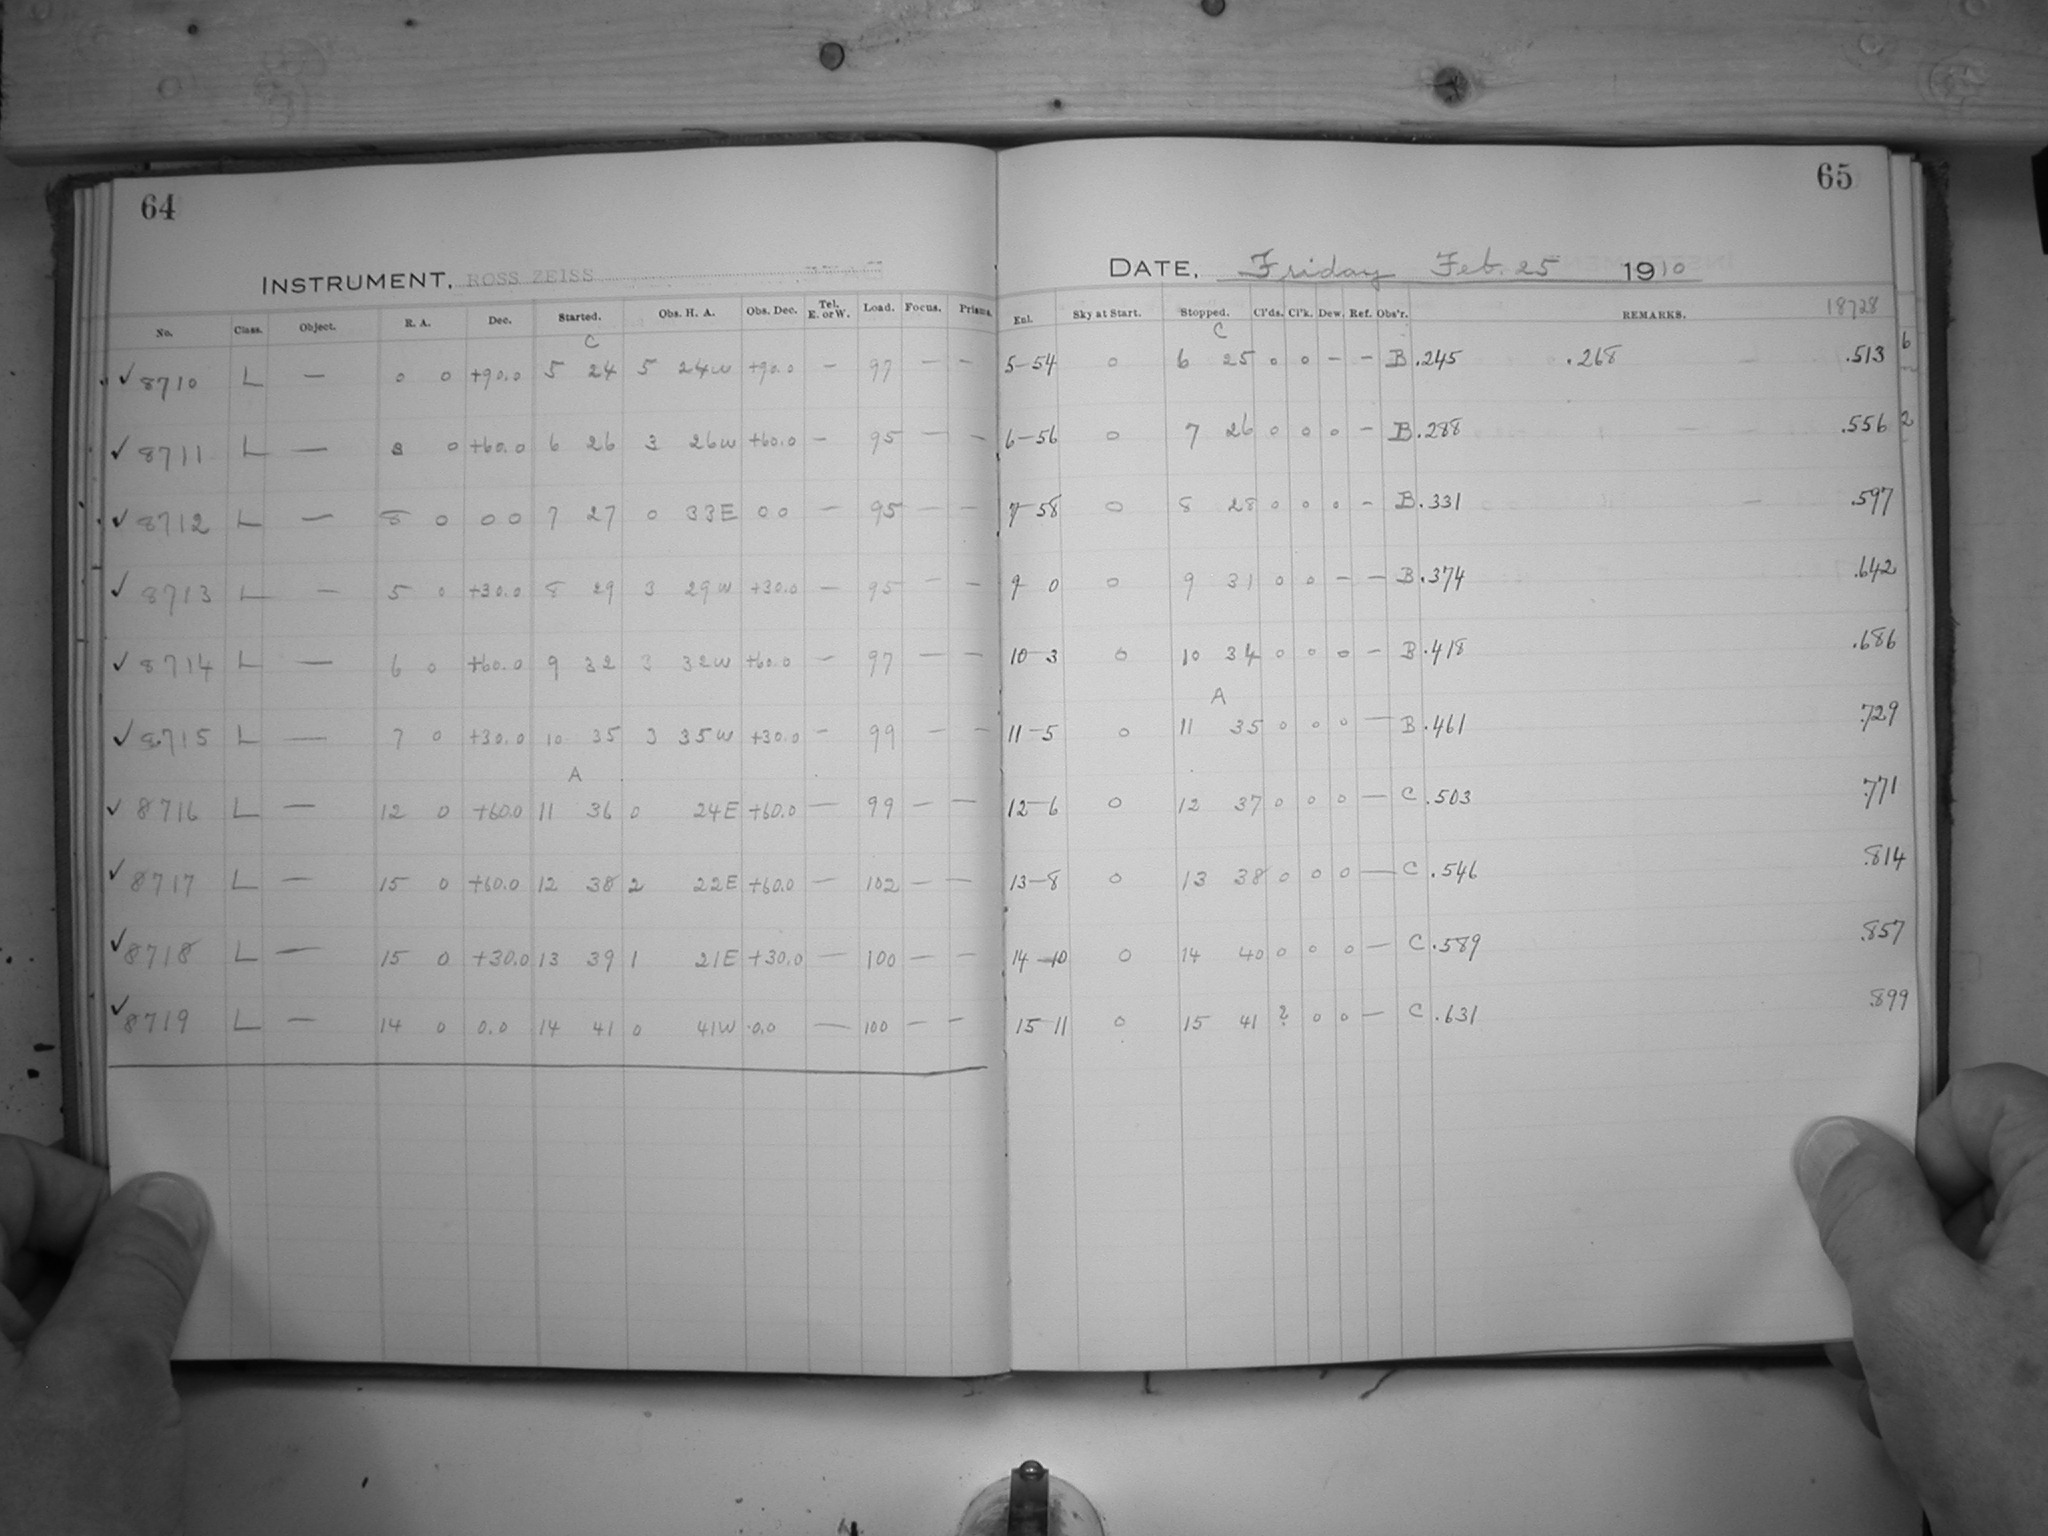 64
INSTRUMENT, ROSS ZEISS
No. Class. Object. R. A. Dec. Started. Obs. H. A. Obs. Dec. Tel. E. or W. Load. Focus. Prisms.
C
✓ 8710 L — 0 0 +90.0 5 24 5 24W +90.0 — 97 — —
✓ 8711 L — 3 0 +60.0 6 26 3 26W +60.0 — 95 — —
✓ 8712 L — 8 0 0 0 7 27 0 33E 0 0 — 95 — —
✓ 8713 L — 5 0 +30.0 8 29 3 29W +30.0 — 95 — —
✓ 8714 L — 6 0 +60.0 9 32 3 32W +60.0 — 97 — —
✓ 8715 L — 7 0 +30.0 10 35 3 35W +30.0 — 99 — —
A
✓ 8716 L — 12 0 +60.0 11 36 0 24E +60.0 — 99 — —
✓ 8717 L — 15 0 +60.0 12 38 2 22E +60.0 — 102 — —
✓ 8718 L — 15 0 +30.0 13 39 1 21E +30.0 — 100 — —
✓ 8719 L — 14 0 0.0 14 41 0 41W 0.0 — 100 — —
65
DATE, Friday Feb. 25 1910
18728
Enl. Sky at Start. Stopped. Cl'ds. Cl'k. Dew. Ref. Obs'r. REMARKS.
C
5-54 0 6 25 0 0 — — B .245 .268 .513
6-56 0 7 26 0 0 0 — B .288 .556
7-58 0 8 28 0 0 0 — B .331 .597
9 0 0 9 31 0 0 — — B .374 .642
10-3 0 10 34 0 0 0 — B .418 .686
A
11-5 0 11 35 0 0 0 — B .461 .729
12-6 0 12 37 0 0 0 — C .503 .771
13-8 0 13 38 0 0 0 — C .546 .814
14-10 0 14 40 0 0 0 — C .589 .857
15 11 0 15 41 ? 0 0 — C .631 .899
6
2